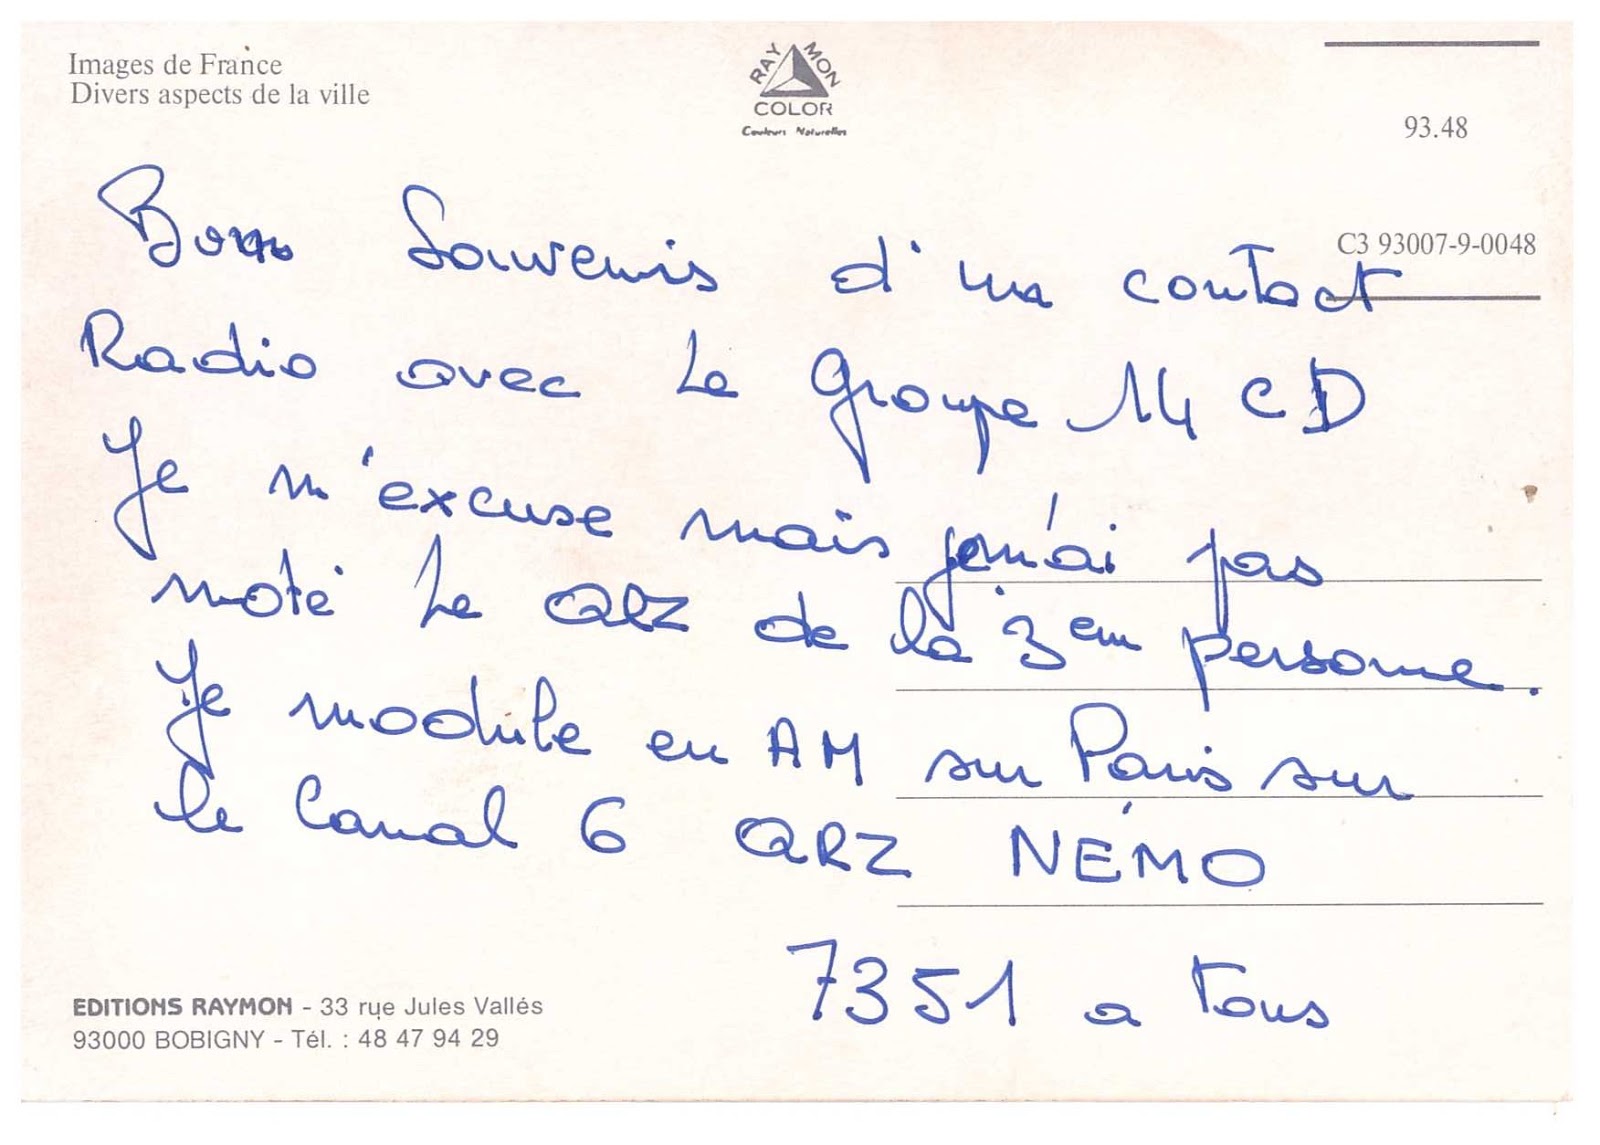 Images de France
Divers aspects de la ville
RAYMON
COLOR
Couleurs Naturelles
93.48
C3 93007-9-0048
Bons Souvenis d'un contact
Radio avec Le Groupe 14 CD
Je m'excuse mais je n'ai pas
noté Le QRZ de la 3em persone.
Je module en AM sur Paris sur
le Canal 6 QRZ NÉMO
7351 a Tous
EDITIONS RAYMON - 33 rue Jules Vallés
93000 BOBIGNY - Tél. : 48 47 94 29